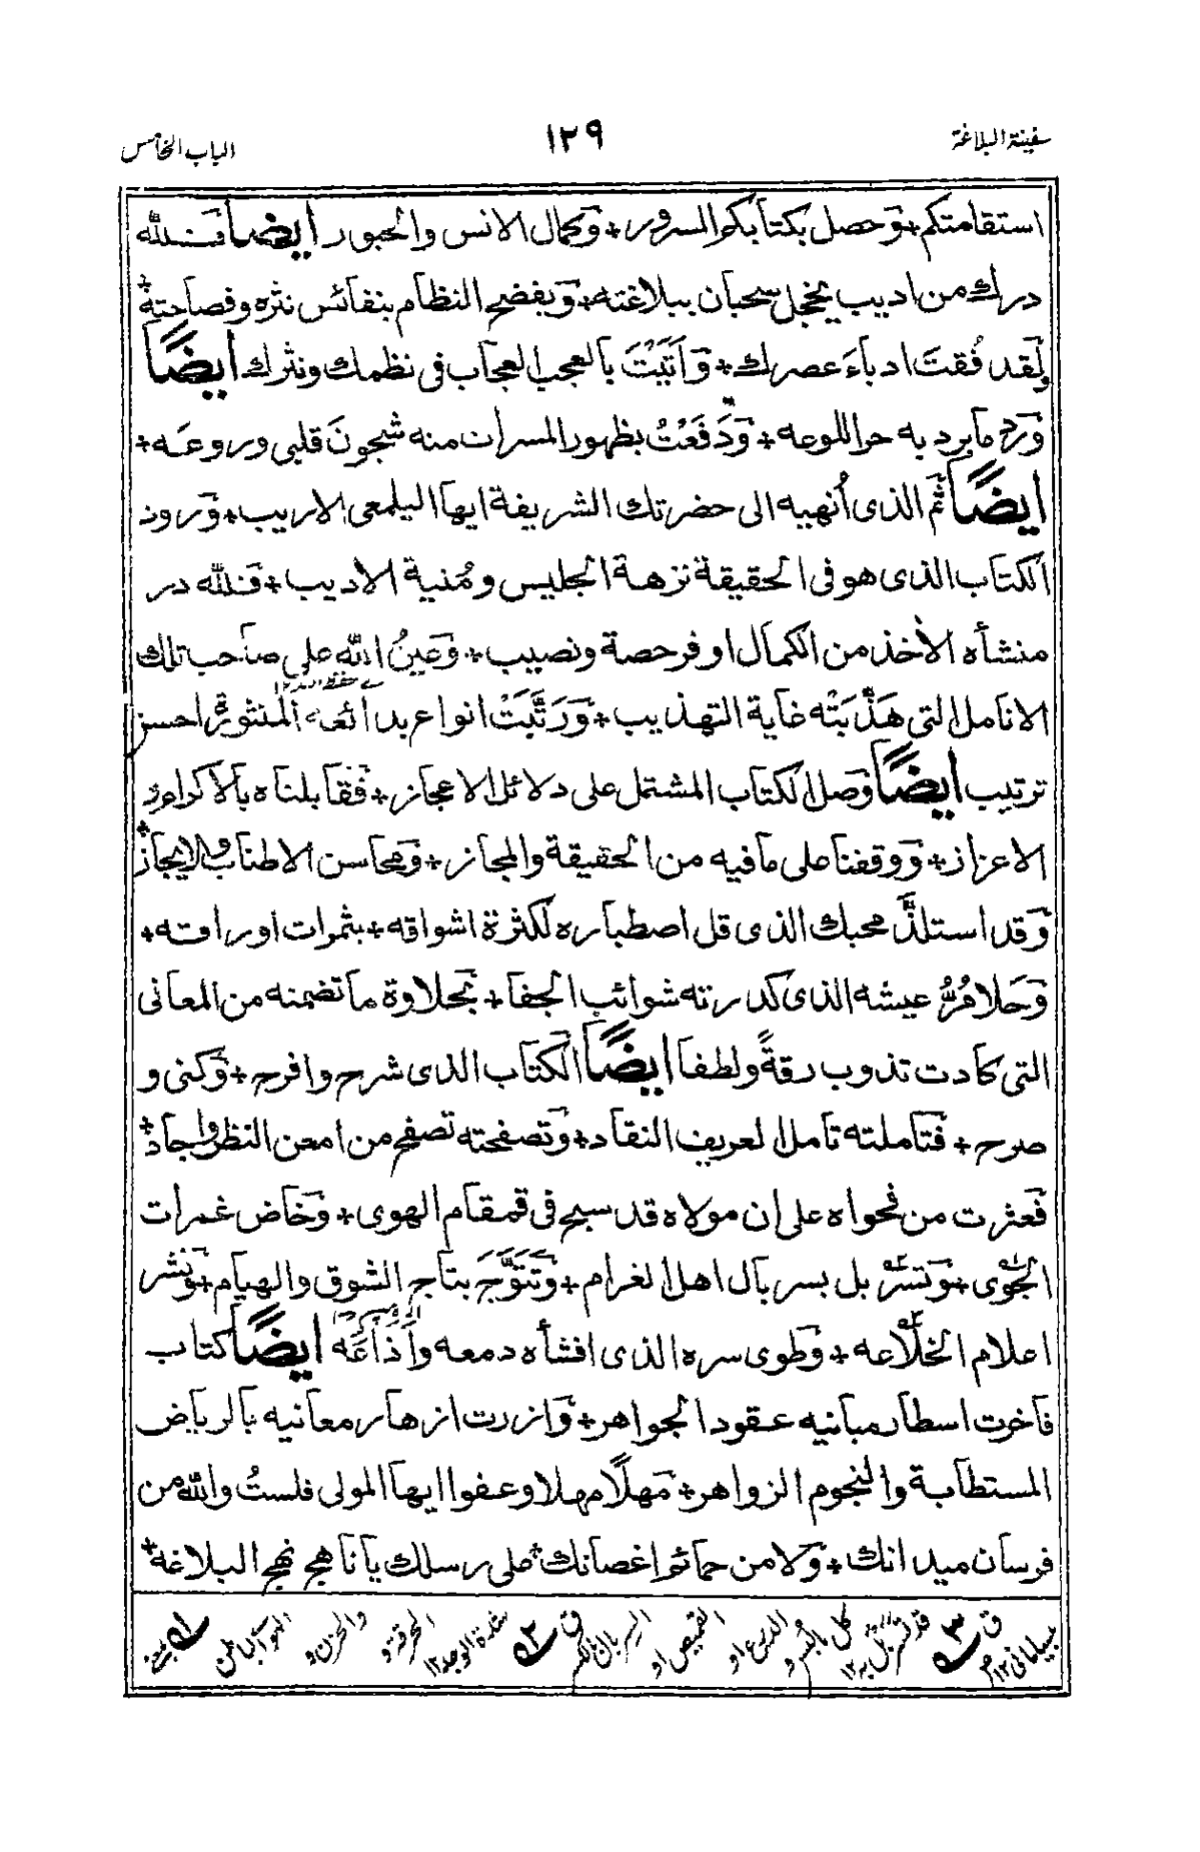 سفينة البلاغة
١٢٩
الباب الخامس
استقامتكم + وحصل بكتابكم السرور + وكمال الانس والحبور ايضاً فلله
درك من اديب يخجل سحبان ببلاغته + ويفضح النظام بنفائس نثره وفصاحته +
ولقد فُقتَ ادباءَ عصرك + وَاَتَيْتَ بالعجب العجاب فى نظمك ونثرك ايضاً
ورد ما برد به حر اللوعه + وَدَفَعْتُ بظهور المسرات منه شجونَ قلبى وروعَه +
ايضاً ثم الذى اُنهيه الى حضرتك الشريفة ايها اليلمعى الاريب + ورود
الكتاب الذى هو فى الحقيقة نزهة الجليس ومُنية الاديب + فلله در
منشأه الأخذ من الكمال اوفر حصة ونصيب + وعينُ الله على صاحب تلك
الانامل التى هَذَّبَتْه غاية التهذيب + وَرَتَّبَتْ انواع بدائعه المنثورة احسن
ترتيب ايضاً وصل الكتاب المشتمل على دلائل الاعجاز + فقابلناه بالاكرام و
الاعزاز + ووقفنا على ما فيه من الحقيقة والمجاز + ومحاسن الاطناب والايجاز +
وقد استلذَّ محبك الذى قل اصطباره لكثرة اشواقه + بثمرات اوراقه +
وحَلا مُرُّ عيشه الذى كدرته شوائب الجفا + بحلاوة ما تضمنه من المعانى
التى كادت تذوب رقةً ولطفا ايضاً الكتاب الذى شرح وافرح + وكنى و
صرح + فتاملته تامل العريف النقاد + وتصفحته تصفح من امعن النظر واجاد +
فعثرت من فحواه على ان مولاه قد سبح فى قمقام الهوى + وخاض غمرات
الجوى + وتسربل بسربال اهل الغرام + وَتَتَوَّجَ بتاج الشوق والهيام + ونشر
اعلام الخلاعه + وطوى سره الذى افشأه دمعه واَذَاعَه ايضاً كتاب
فاخرت اسطار مبانيه عقود الجواهر + وازرت ازهار معانيه بالرياض
المستطابة والنجوم الزواهر + مهلًا مهلا وعفوا ايها المولى فلستُ والله من
فرسان ميدانك + ولا من حمائم اغصانك + على رسلك يا ناهج نهج البلاغه +